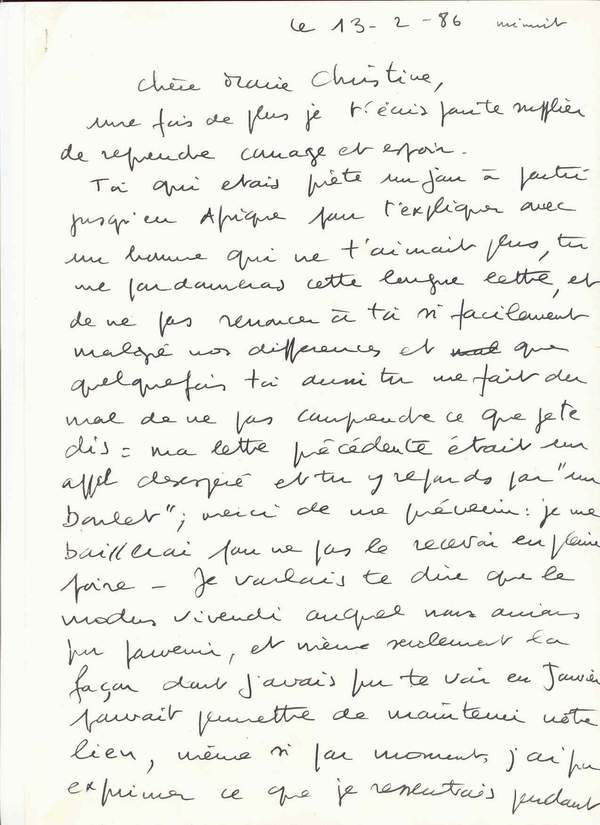 Le 13-2-86 minuit
Chère Marie Christine,
une fois de plus je t'écris pour te supplier
de reprendre courage et espoir.
Toi qui etais prête un jour à partir
jusqu'en Afrique pour t'expliquer avec
un homme qui ne t'aimait plus, tu
me pardonneras cette longue lettre, et
de ne pas renoncer à toi si facilement
malgré nos différences et que
quelquefois toi aussi tu me fait du
mal de ne pas comprendre ce que je te
dis = ma lettre précédente était un
appel desespéré et tu y reponds par "un
boulet"; merci de me prévenir : je me
baisserai pour ne pas le recevoir en pleine
poire - Je voulais te dire que le
modus vivendi auquel nous avions
pu parvenir, et même seulement la
façon dont j'avais pu te voir en Janvier
pouvait permettre de maintenir notre
lien, même si par moments j'ai pu
exprimer ce que je ressentais pendant